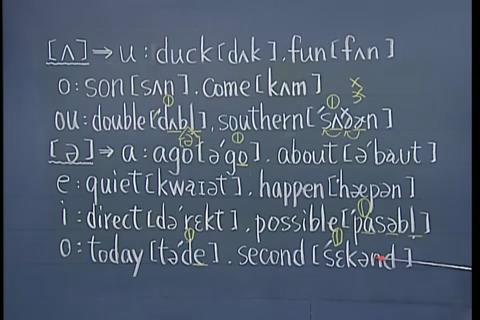 [ʌ] ⇒ u : duck [dʌk] . fun [fʌn]
o : son [sʌn] . come [kʌm]
ou : double [dʌbl] , southern [ˈsʌðɚn]
[ə] ⇒ a : ago [əˈgo] . about [əˈbaut]
e : quiet [kwaɪət] . happen [hæpən]
i : direct [dəˈrɛkt] , possible [ˈpɑsəbl]
o : today [təˈde] . second [ˈsɛkənd]